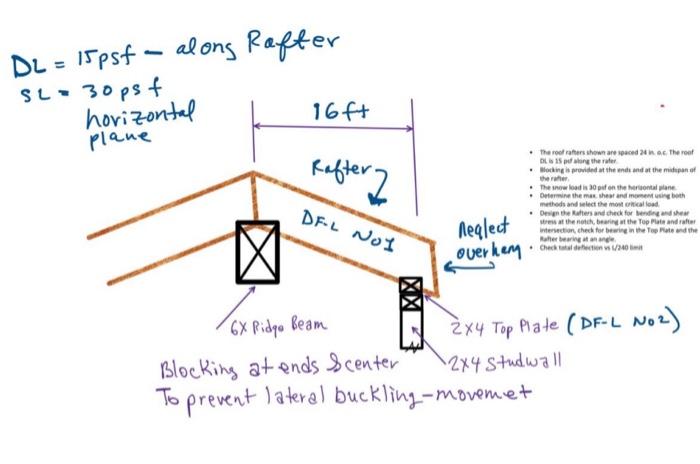 DL = 15psf - along Rafter
SL = 30 psf
horizontal
plane
16ft
Rafter
DF-L No1
Neglect
overhang
• The roof rafters shown are spaced 24 in. o.c. The roof
DL is 15 psf along the rafer.
• Blocking is provided at the ends and at the midspan of
the rafter.
• The snow load is 30 psf on the horisontal plane.
• Determine the max. shear and moment using both
methods and select the most critical load.
• Design the Rafters and check for bending and shear
stress at the notch, bearing at the Top Plate and rafter
intersection, check for bearing in the Top Plate and the
Rafter bearing at an angle.
• Check total deflection vs L/240 limit
6X Ridge Beam
2x4 Top Plate (DF-L No2)
2x4 Studwall
Blocking at ends & center
To prevent lateral buckling-movemet